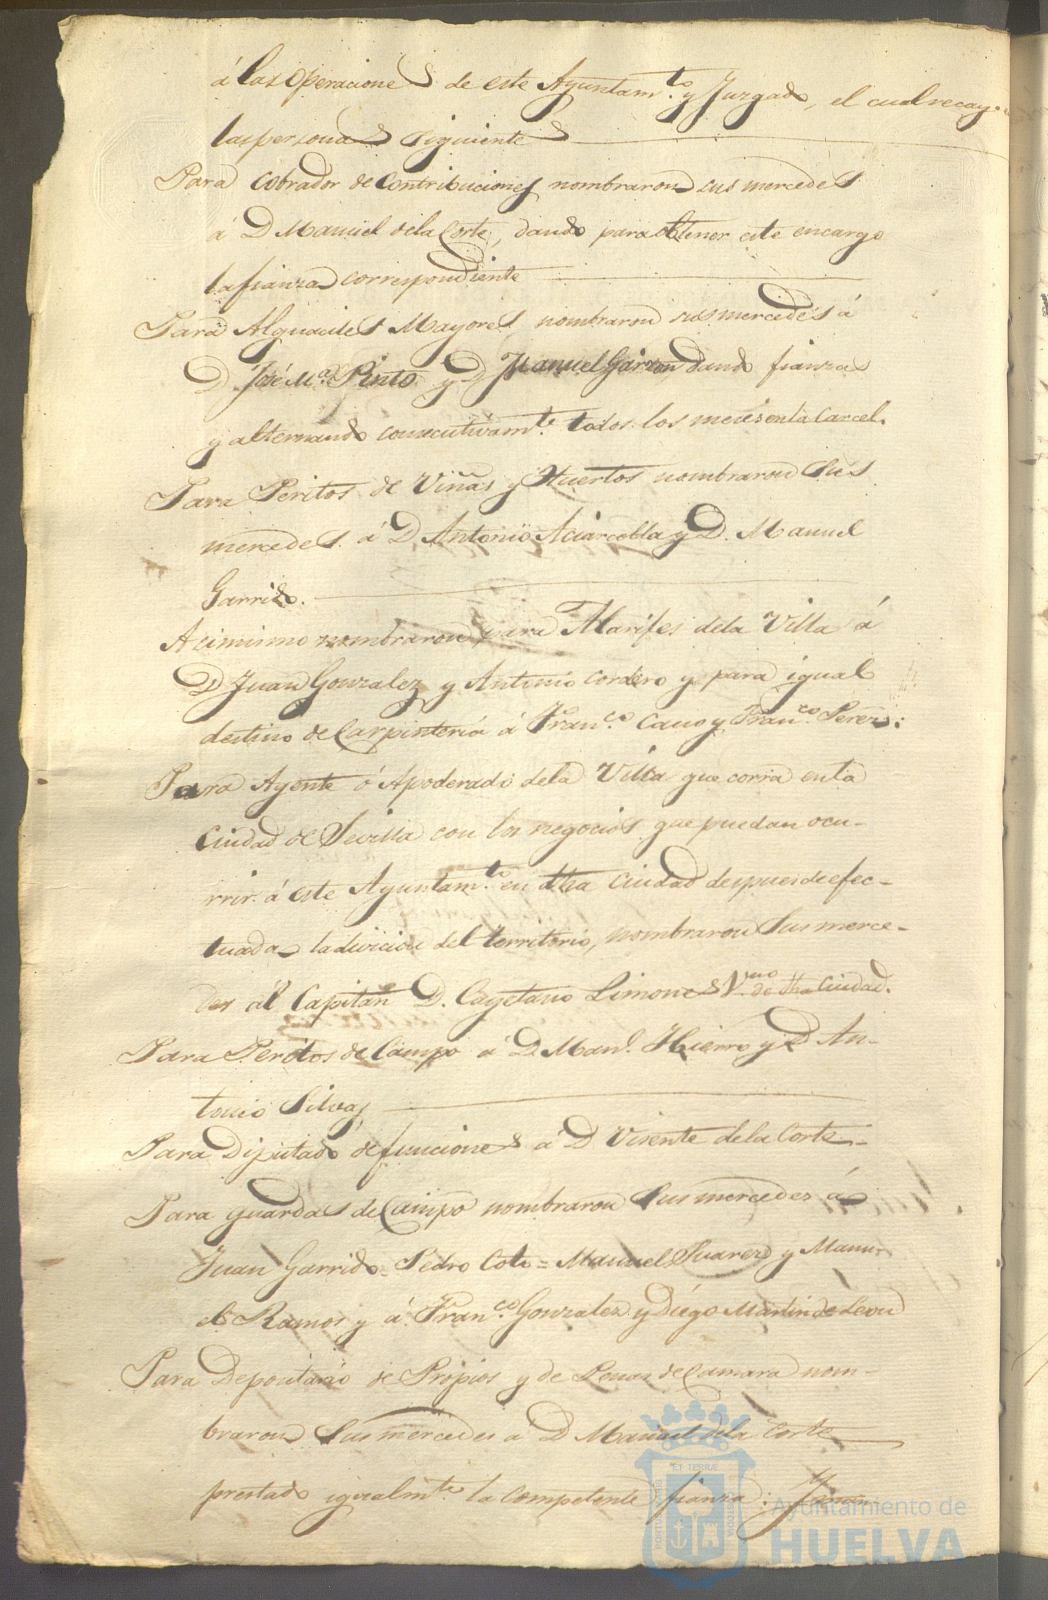 á las Operaciones de este Ayuntam.to y Juzgado, el cual recayo
las personas siguientes
Para cobrador de Contribuciones nombraron sus mercedes
á D Manuel de la Corte, dando para obtener este encargo
la fianza correspondiente
Para Alguaciles Mayores nombraron sus mercedes á
D José M.a Pinto y D Manuel Garzon dando fianzas
y alternando consecutivam.te todos los meses en la Carcel.
Para Peritos de Viñas y Huertos nombraron sus
mercedes á D Antonio Aciarcolla y D. Manuel
Garrido.
Acimismo nombraron para Alarifes de la Villa á
D Juan Gonzalez y Antonio Cordero y para igual
destino de Carpinteria á Fran.co Cano y Fran.co Perez:
Para Agente ó Apoderado de la Villa que corra en la
Ciudad de Sevilla con los negocios que puedan ocu-
rrir á este Ayuntam.to en dha Ciudad despues de efec-
tuada la divicion del territorio, nombraron sus merce-
des al Capitan D. Cayetano Limones V.no de dha Ciudad.
Para Peritos de Campo á D Man.l Hierro y D An-
tonio Silvas
Para Diputado de funciones á D Visente de la Corte
Para guardas de Campo nombraron sus mercedes á
Juan Garrido = Pedro Coto = Manuel Suarez y Manu-
el Ramos y á Fran.co Gonzalez y Diego Martin de Leon
Para Depositario de Propios y de Penas de Camara nom-
braron sus mercedes á D Manuel de la Corte
prestado igualm.te la competente fianza:
Ayuntamiento de
HUELVA